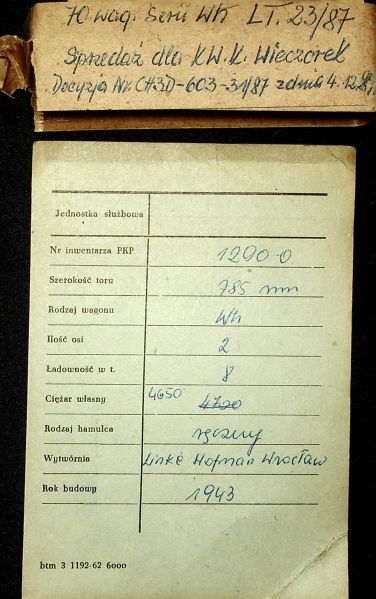 70 wag. Serii Wh LT. 23/87
Sprzedaż dla KW.K. Wieczorek
Decyzja Nr CH3D-603-31/87 z dnia 4.12.87
Jednostka służbowa
Nr inwentarza PKP 1290-0
Szerokość toru 785 mm
Rodzaj wagonu Wh
Ilość osi 2
Ładowność w t. 8
Ciężar własny 4650 4700
Rodzaj hamulca ręczny
Wytwórnia Linke Hofman Wrocław
Rok budowy 1943
btm 3 1192-62 6000